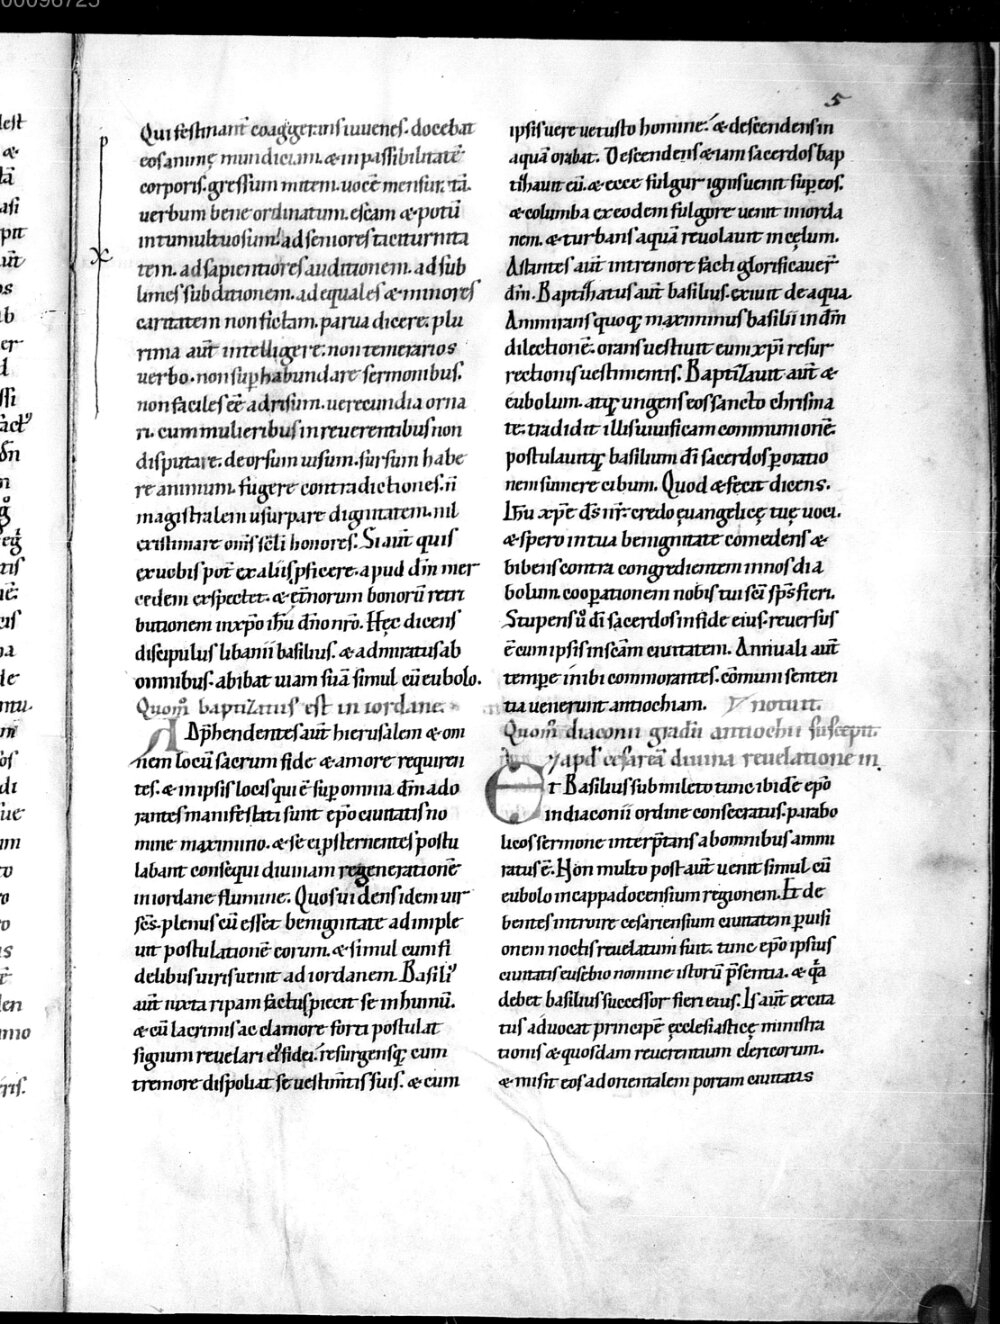 5
Qui festinant coaggerans iuuenes. docebat
eos animę mundiciam. & inpassibilitatē
corporis. gressum mitem. uocē mensuratā.
uerbum bene ordinatum. escam & potū
intumultuosum. ad seniores taciturnita
tem. ad sapientiores auditionem. ad sub
limes subditionem. ad equales & minores
caritatem non fictam. parua dicere. plu
rima aut̄ intelligere. non temerarios
uerbo. non suphabundare sermonibus.
non faciles eē ad risum. uerecundia orna
ri. cum mulieribus inreuerentibus non
disputare. deorsum uisum. sursum habe
re animum. fugere contradictiones. n̄
magistralem usurpare dignitatem. nil
existimare om̄s sc̄li honores. Si aut̄ quis
ex uobis pot̄ ex aliis pficere. apud dn̄m mer
cedem exspectet. & et̄norum bonorū retri
butionem in xp̄o ihū dn̄o nr̄o. Hęc dicens
discipulus libanii basilius. & admiratus ab
omnibus. abibat uiam suā simul cū eubolo.
Quom̄ baptizatus est in iordane.
Adp̄hendentes aut̄ hierusalem & om
nem locū sacrum fide & amore requiren
tes. & in ipsis locis qui ē sup omnia dm̄ ado
rantes manifestati sunt ep̄o ciuitatis no
mine maximino. & se ei psternentes postu
labant consequi diuinam regenerationē
in iordane flumine. Quos uidens idem uir
sc̄s. plenus cū esset benignitate adimple
uit postulationē eorum. & simul cum fi
delibus uiris uenit ad iordanem. Basili'
aut̄ iuxta ripam factus piecit se in humū.
& cū lacrimis ac clamore forti postulat
signum reuelari ei' fidei. resurgensq; cum
tremore dispoliat se uestim̄tis suis. & cum
ipsis uere uetusto homine. & descendens in
aquā orabat. Descendens & iam sacerdos bap
tizauit eū. & ecce fulgur ignis uenit sup eos.
& columba ex eodem fulgore uenit in iorda
nem. & turbans aquā reuolauit in cęlum.
Astantes aut̄ in tremore facti glorificauer̄
dm̄. Baptizatus aut̄ basilius. exiuit de aqua.
Ammirans quoq; maximinus basilii in dm̄
dilectionē. orans uestiuit eum xp̄i resur
rectionis uestimentis. Baptizauit aut̄ &
eubolum. atq; ungens eos sancto chrisma
te. tradidit illis uiuificam communionē.
postulauitq; basilium dī sacerdos p oratio
nem sumere cibum. Quod & fecit dicens.
Ihū xp̄e ds̄ nr̄. credo euangelicę tuę uoci.
& spero in tua benignitate comedens &
bibens contra congredientem in nos dia
bolum. cooperationem nobis tui sc̄i sp̄s fieri.
Stupens ū dī sacerdos in fide eius. reuersus
ē cum ipsis in sc̄am ciuitatem. Annuali aut̄
tempe inibi commorantes. cōmuni senten
tia uenerunt antiochiam. notuit.
Quom̄ diaconii gradū antiochii suscepit.
& apd' cesareā diuina reuelatione in
Et Basilius sub mileto tunc ibidē ep̄o
in diaconii ordine consecratus. parabo
licos sermone interp̄tans ab omnibus ammi
ratus ē. Non multo post aut̄ uenit simul cū
eubolo in cappadocensium regionem. Et de
bentes introire cesariensium ciuitatem p uisi
onem noctis reuelatum fuit. tunc ep̄o ipsius
ciuitatis eusebio nomine istorū p̄sentia. & qā
debet basilius successor fieri eius. Is aut̄ excita
tus aduocat principē ecclesiasticę ministra
tionis & quosdam reuerentium clericorum.
& misit eos ad orientalem portam ciuitatis